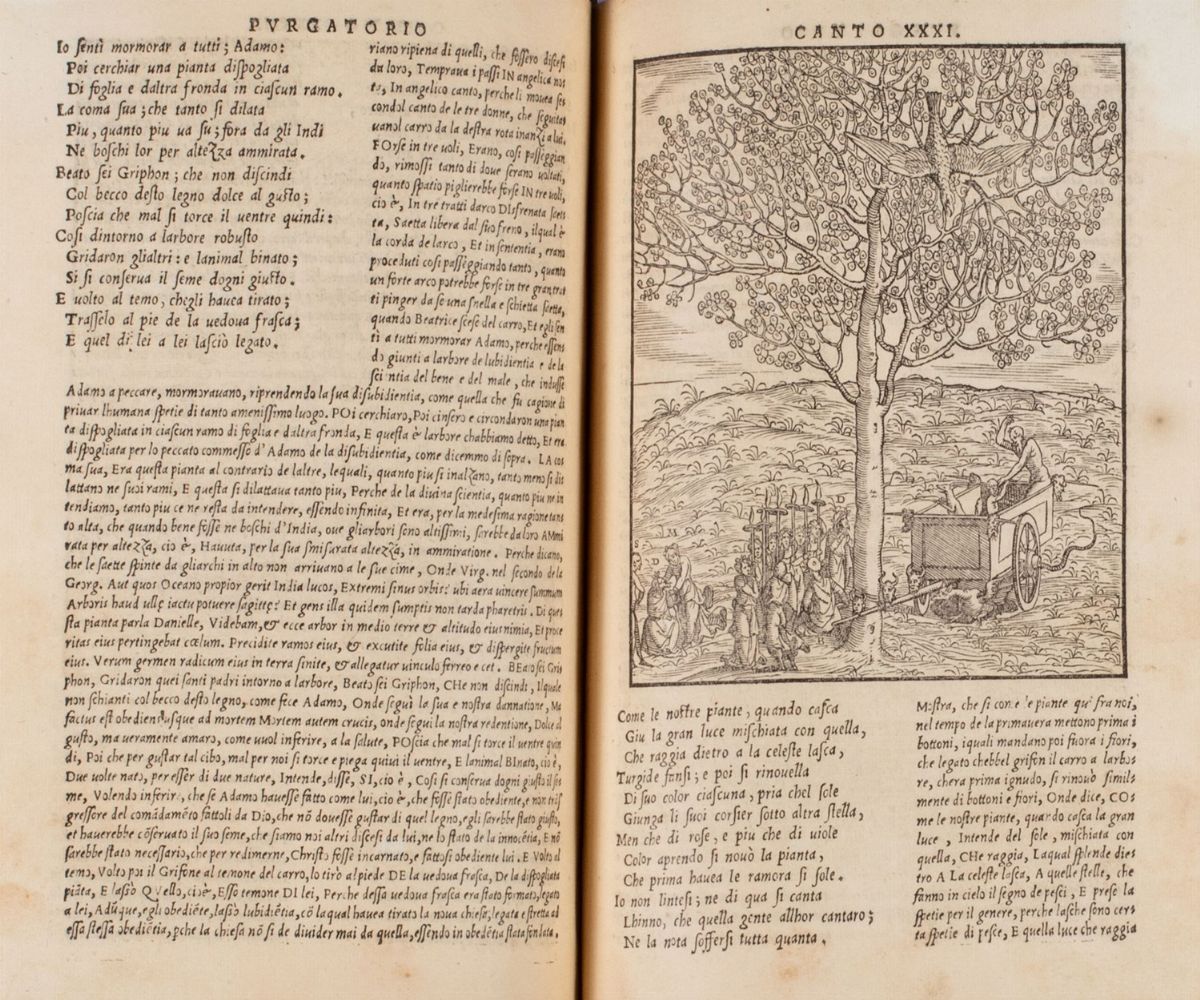 PVRGATORIO
Io sentì mormorar a tutti; Adamo:
Poi cerchiar una pianta dispogliata
Di foglia e daltra fronda in ciascun ramo.
La coma sua; che tanto si dilata
Piu, quanto piu ua su; fora da gli Indi
Ne boschi lor per altezza ammirata.
Beato sei Griphon; che non discindi
Col becco desto legno dolce al gusto;
Poscia che mal si torce il uentre quindi:
Cosi dintorno a larbore robusto
Gridaron glialtri: e lanimal binato;
Si si conserua il seme dogni giusto.
E uolto al temo, chegli hauea tirato;
Trasselo al pie de la uedoua frasca;
E quel di lei a lei lasciò legato.
riano ripiena di quelli, che fossero discesi
da loro, Tempraua i passi IN angelica no
ta, In angelico canto, perche li mouea se
condo'l canto de le tre donne, che seguita
uano'l carro da la destra rota inanzi a lui.
FOrse in tre voli, Erano, cosi passeggian
do, rimossi tanto di doue serano uoltati,
quanto spatio piglierebbe forse IN tre uoli,
cio è, In tre tratti darco DIsfrenata saet
ta, Saetta libera dal suo freno, ilqual è
la corda de larco, Et in sententia, erano
proceduti cosi passeggiando tanto, quanto
un forte arco potrebbe forse in tre gran trat
ti pinger da se una snella e schietta saetta,
quando Beatrice scese del carro, Et egli sen
ti a tutti mormorar Adamo, perche essen
do giunti a larbore de lubidientia e de la
scientia del bene e del male, che indusse
Adamo a peccare, mormorauano, riprendendo la sua disubidientia, come quella che fu cagione di
priuar lhumana spetie di tanto amenissimo luogo. POi cerchiaro, Poi cinsero e circondaron una pian
ta dispogliata in ciascun ramo di foglia e daltra fronda, E questa è larbore chabbiamo detto, Et era
dispogliata per lo peccato commesso d'Adamo de la disubidientia, come dicemmo di sopra. LA co
ma sua, Era questa pianta al contrario de laltre, lequali, quanto piu si inalzano, tanto meno si di
lattano ne suoi rami, E questa si dilattaua tanto piu, Perche de la diuina scientia, quanto piu ne in
tendiamo, tanto piu ce ne resta da intendere, essendo infinita, Et era, per la medesima ragione tan
to alta, che quando bene fosse ne boschi d'India, oue gliarbori sono altissimi, sarebbe da loro AMmi
rata per altezza, cio è, Hauuta, per la sua smisurata altezza, in ammiratione. Perche dicano,
che le saette spinte da gliarchi in alto non arriuano a le sue cime, Onde Virg. nel secondo de la
Georg. Aut quos Oceano propior gerit India lucos, Extremi sinus orbis? ubi aera uincere summum
Arboris haud ullę iactu potuere sagittę? Et gens illa quidem sumptis non tarda pharetris. Di que
sta pianta parla Danielle, Videbam, & ecce arbor in medio terre & altitudo eius nimia, Et proce
ritas eius pertingebat cœlum. Precidite ramos eius, & excutite folia eius, & dispergite fructum
eius. Verum germen radicum eius in terra sinite, & allegatur uinculo ferreo e cet. BEato sei Gri
phon, Gridaron quei santi padri intorno a larbore, Beato sei Griphon, CHe non discindi, Il quale
non schianti col becco desto legno, come fece Adamo, Onde seguì la sua e nostra dannatione, Ma
factus est obediens usque ad mortem Mortem autem crucis, onde seguì la nostra redentione, Dolce al
gusto, ma ueramente amaro, come uuol inferire, a la salute, POscia che mal si torce il uentre quin
di, Poi che per gustar tal cibo, mal per noi si torce e piega quiui il uentre, E lanimal BInato, cio è,
Due uolte nato, per esser di due nature, Intende, disse, SI, cio è, Cosi si conserua dogni giusto il se
me, Volendo inferire, che se Adamo hauesse fatto come lui, cio è, che fosse stato obediente, e non tras
gressore del comãdamẽto fattoli da Dio, che nõ douesse gustar di quel legno, egli sarebbe stato giusto,
et hauerebbe cõseruato il suo seme, che siamo noi altri discesi da lui, ne lo stato de la innocẽtia, E nõ
sarebbe stato necessario, che per redimerne, Christo fosse incarnato, e fattosi obediente lui. E Volto al
temo, Volto poi il Grifone al temone del carro, lo tirò al piede DE la uedoua frasca, De la dispogliata
piãta, E lasciò QVello, cio è, Esso temone DI lei, Perche dessa uedoua frasca era stato formato, legato
a lei, Adũque, egli obediẽte, lasciò lubidiẽtia, cõ laqual hauea tirato la noua chiesa, legata e stretta ad
essa stessa obediẽtia, pche la chiesa nõ si de diuider mai da quella, essendo in obedẽtia stata fondata.
CANTO XXXI.
D
M
S
D
Come le nostre piante, quando casca
Giu la gran luce mischiata con quella,
Che raggia dietro a la celeste lasca,
Turgide fansi; e poi si rinouella
Di suo color ciascuna, pria chel sole
Giunga li suoi corsier sotto altra stella,
Men che di rose, e piu che di uiole
Color aprendo si nouò la pianta,
Che prima hauea le ramora si sole.
Io non lintesi; ne di qua si canta
Lhinno, che quella gente allhor cantaro;
Ne la nota soffersi tutta quanta.
Mostra, che si come le piante qui fra noi,
nel tempo de la primauera mettono prima i
bottoni, iquali mandano poi fuora i fiori,
che legato chebbe'l grifon il carro a larbo
re, chera prima ignudo, si rinouò simil
mente di bottoni e fiori, Onde dice, COs
me le nostre piante, quando casca la gran
luce, Intende del sole, mischiata con
quella, CHe raggia, Laqual splende die
tro A La celeste lasca, A quelle stelle, che
fanno in cielo il segno de pesci, E prese la
spetie per il genere, perche lasche sono cer
ta spetie di pesce, E quella luce che raggia